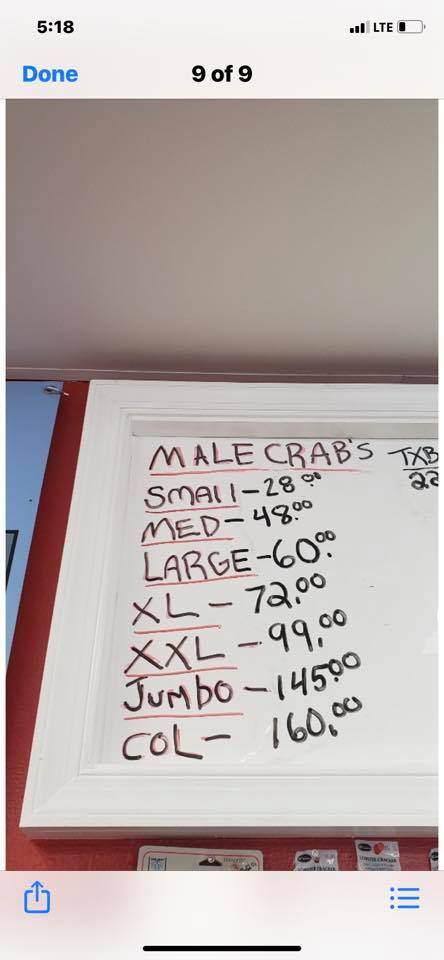 5:18
LTE
Done
9 of 9
MALE CRAB'S
SMAll - 28.00
MED - 48.00
LARGE - 60.00
XL - 72.00
XXL - 99.00
JUMBO - 145.00
COL - 160.00
TXB
22
LOBSTER CRACKER
LOBSTER CRACKER